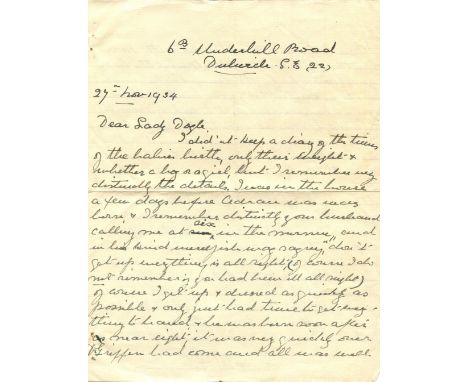 6a Underhill Road
Dulwich. S.E. (22)
27th Nov 1934
Dear Lady Doyle.
I did'nt keep a diary of the times
of the babies births, only their weight &
whether a boy or girl, but I remember very
distinctly the details, I was in the house
a few days before Adrian was
born & I remember distinctly your husband
calling me at six in the morning, and
in his kind unselfish way saying "don't
get up everything is all right" (of course I do
not remember if you had been ill all night)
of course I got up & dressed as quickly as
possible & only just had time to get every-
thing to hand, & he was born soon after
as near eight it was very quickly over
Griffin had come and all was well.